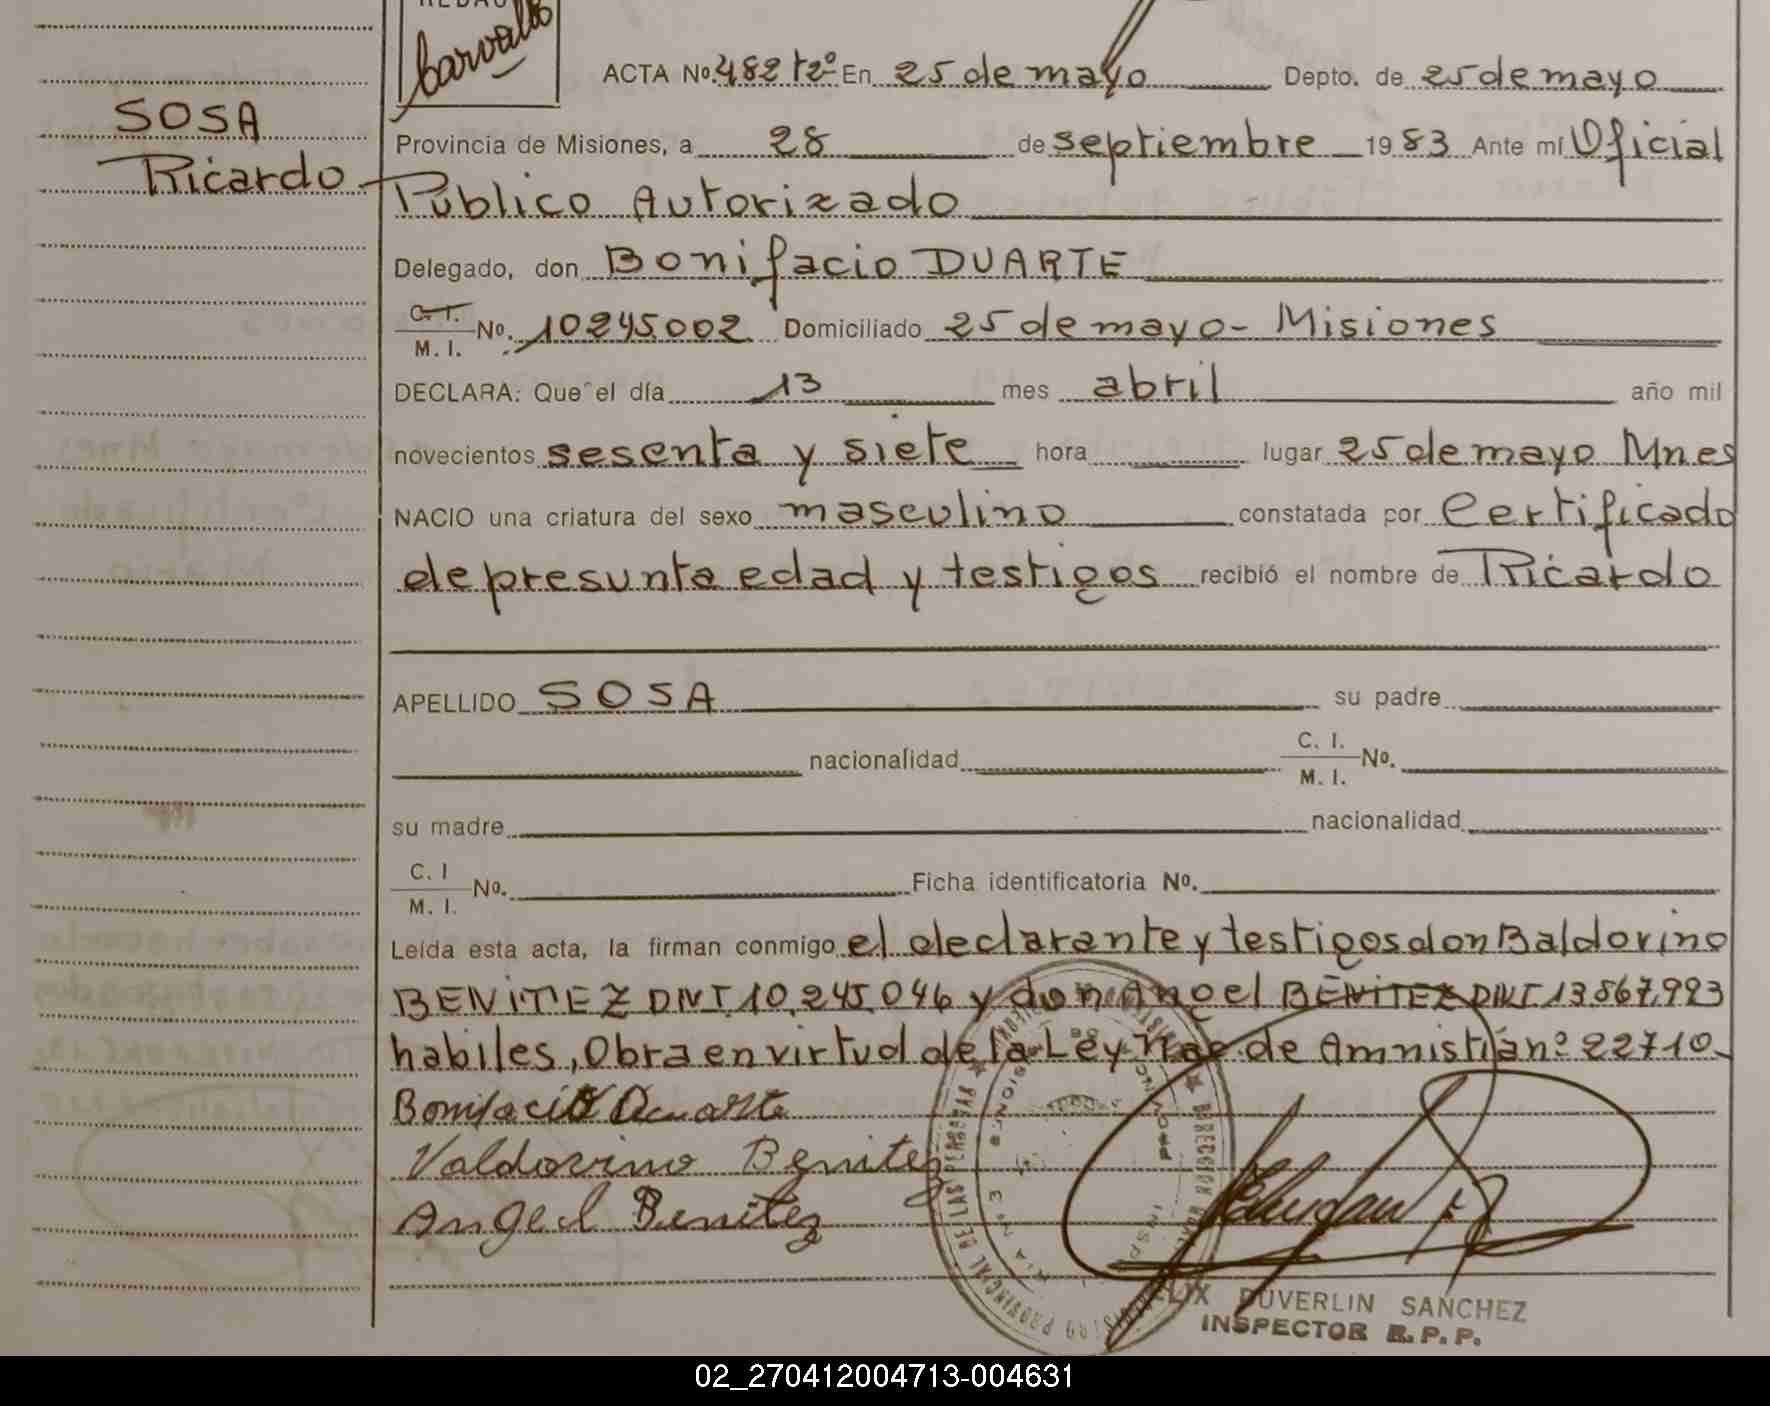 REDAC
Carvallo
SOSA
Ricardo
ACTA No. 482 tº 2º En 25 de mayo Depto. de 25 de mayo
Provincia de Misiones, a 28 de septiembre 1983 Ante mí Oficial
Público Autorizado
Delegado, don Bonifacio DUARTE
C. I.
M. I. No. 10245002 Domiciliado 25 de mayo - Misiones
DECLARA: Que el día 13 mes abril año mil
novecientos sesenta y siete hora lugar 25 de mayo Mnes
NACIO una criatura del sexo masculino constatada por Certificado
de presunta edad y testigos recibió el nombre de Ricardo
APELLIDO SOSA su padre
nacionalidad C. I.
M. I. No.
su madre nacionalidad
C. I
M. I. No. Ficha identificatoria No.
Leída esta acta, la firman conmigo el declarante y testigos don Baldovino
BENITEZ DNI. 10.245.046 y don Angel BENITEZ DNI 13.867.993
habiles, Obra en virtud de la Ley Nac. de Amnistia nº 22710-
Bonifacio Duarte
Valdovino Benitez
Angel Benitez
FELIX DUVERLIN SANCHEZ
INSPECTOR R.P.P.
02_270412004713-004631